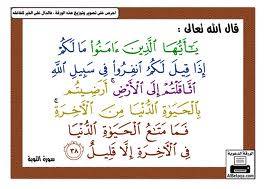 احرص على تصوير وتوزيع هذه الورقة ، فالدال على الخير كفاعله
قال الله تعالى :
يَـٰٓأَيُّهَا ٱلَّذِينَ ءَامَنُوا۟ مَا لَكُمْ
إِذَا قِيلَ لَكُمُ ٱنفِرُوا۟ فِى سَبِيلِ ٱللَّهِ
ٱثَّاقَلْتُمْ إِلَى ٱلْأَرْضِ ۚ أَرَضِيتُم
بِٱلْحَيَوٰةِ ٱلدُّنْيَا مِنَ ٱلْـَٔاخِرَةِ ۚ
فَمَا مَتَـٰعُ ٱلْحَيَوٰةِ ٱلدُّنْيَا
فِى ٱلْـَٔاخِرَةِ إِلَّا قَلِيلٌ ٣٨
سورة التوبة
الورقة الدعوية